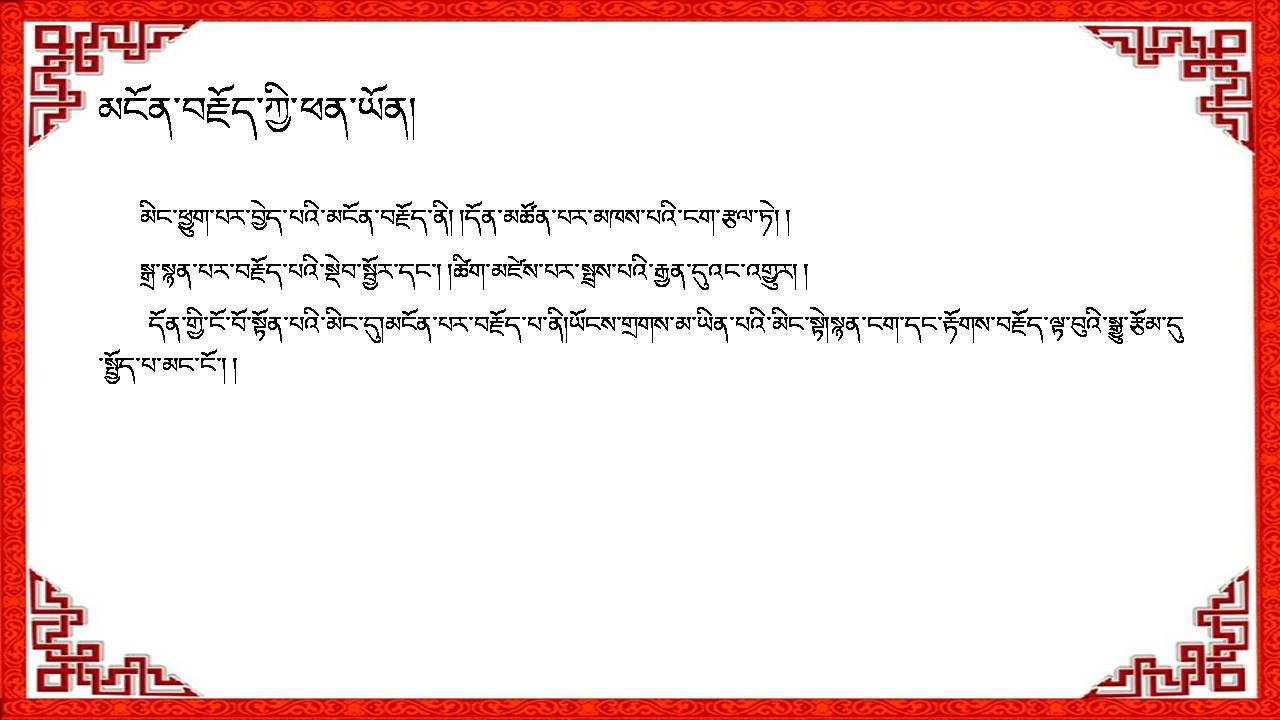 མངོན་བརྗོད་ཀྱི་ཕན་ཡོན།
མིང་ཕྱུག་པར་བྱེད་པའི་མངོན་བརྗོད་ནི། །དོན་མཚོན་པར་མཁས་པའི་ངག་རྩལ་ཏེ། །
སྒྲ་སྙན་པར་བརྗོད་པའི་སྡེབ་སྦྱོར་དང་། །ཚིག་མཛེས་པར་སྤྲས་པའི་རྒྱན་དུའང་འགྱུར། །
དོན་གྱི་ངོ་བོ་སྟོན་པའི་མིང་དུ།མངོན་པར་བརྗོད་པ་ནི།ཡོངས་གྲགས་མ་ཡིན་པའི་མིང་སྟེ།སྙན་ངག་དང་རྟོགས་བརྗོད་ལྟ་བུའི་སྒྱུ་རྩོམ་དུ
་སྤྱོད་པ་མང་ངོ་། །